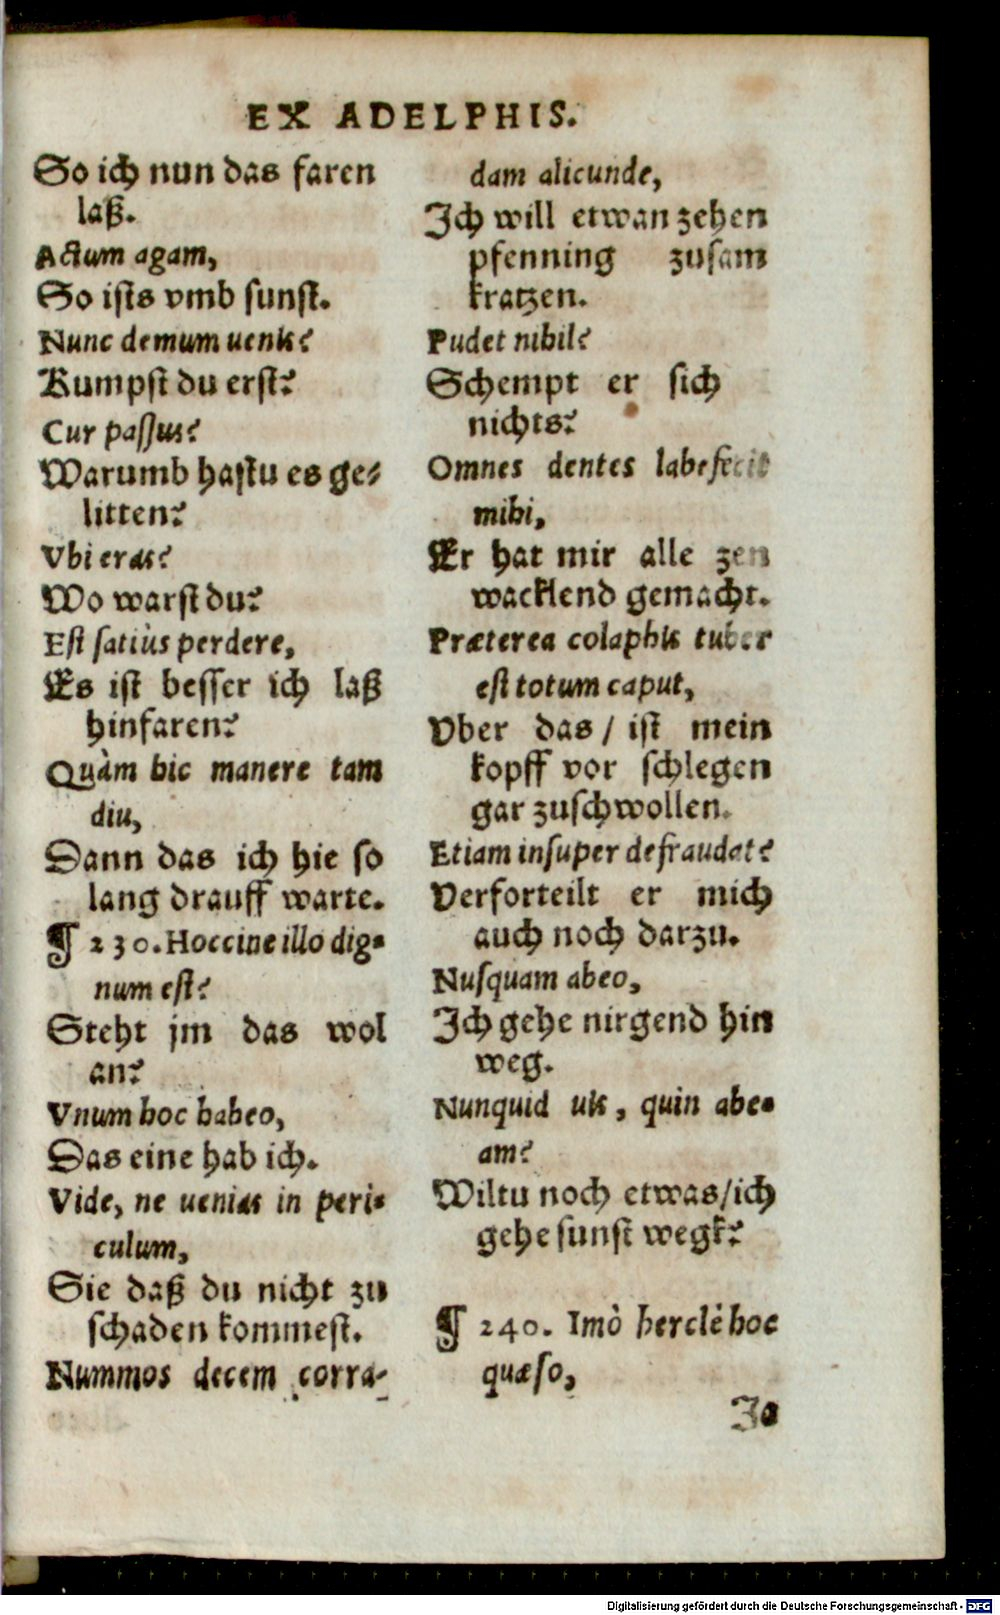 EX ADELPHIS.
So ich nun das faren
laß.
Actum agam,
So ists vmb sunst.
Nunc demum uenis?
Kumpst du erst?
Cur passus?
Warumb hastu es ge-
litten?
Vbi eras?
Wo warst du?
Est satiùs perdere,
Es ist besser ich laß
hinfaren?
Quàm hic manere tam
diu,
Dann das ich hie so
lang drauff warte.
¶ 230. Hoccine illo dig-
num est?
Steht jm das wol
an?
Vnum hoc habeo,
Das eine hab ich.
Vide, ne uenias in peri-
culum,
Sie daß du nicht zu
schaden kommest.
Nummos decem corra-
dam alicunde,
Ich will etwan zehen
pfenning zusam
kratzen.
Pudet nihil?
Schempt er sich
nichts?
Omnes dentes labefecit
mihi,
Er hat mir alle zen
wacklend gemacht.
Præterea colaphis tuber
est totum caput,
Vber das / ist mein
kopff vor schlegen
gar zuschwollen.
Etiam insuper defraudat?
Verforteilt er mich
auch noch darzu.
Nusquam abeo,
Ich gehe nirgend hin
weg.
Nunquid uis, quin abe-
am?
Wiltu noch etwas/ich
gehe sunst wegk?
¶ 240. Imò herclè hoc
quæso,
Ja
Digitalisierung gefördert durch die Deutsche Forschungsgemeinschaft - DFG